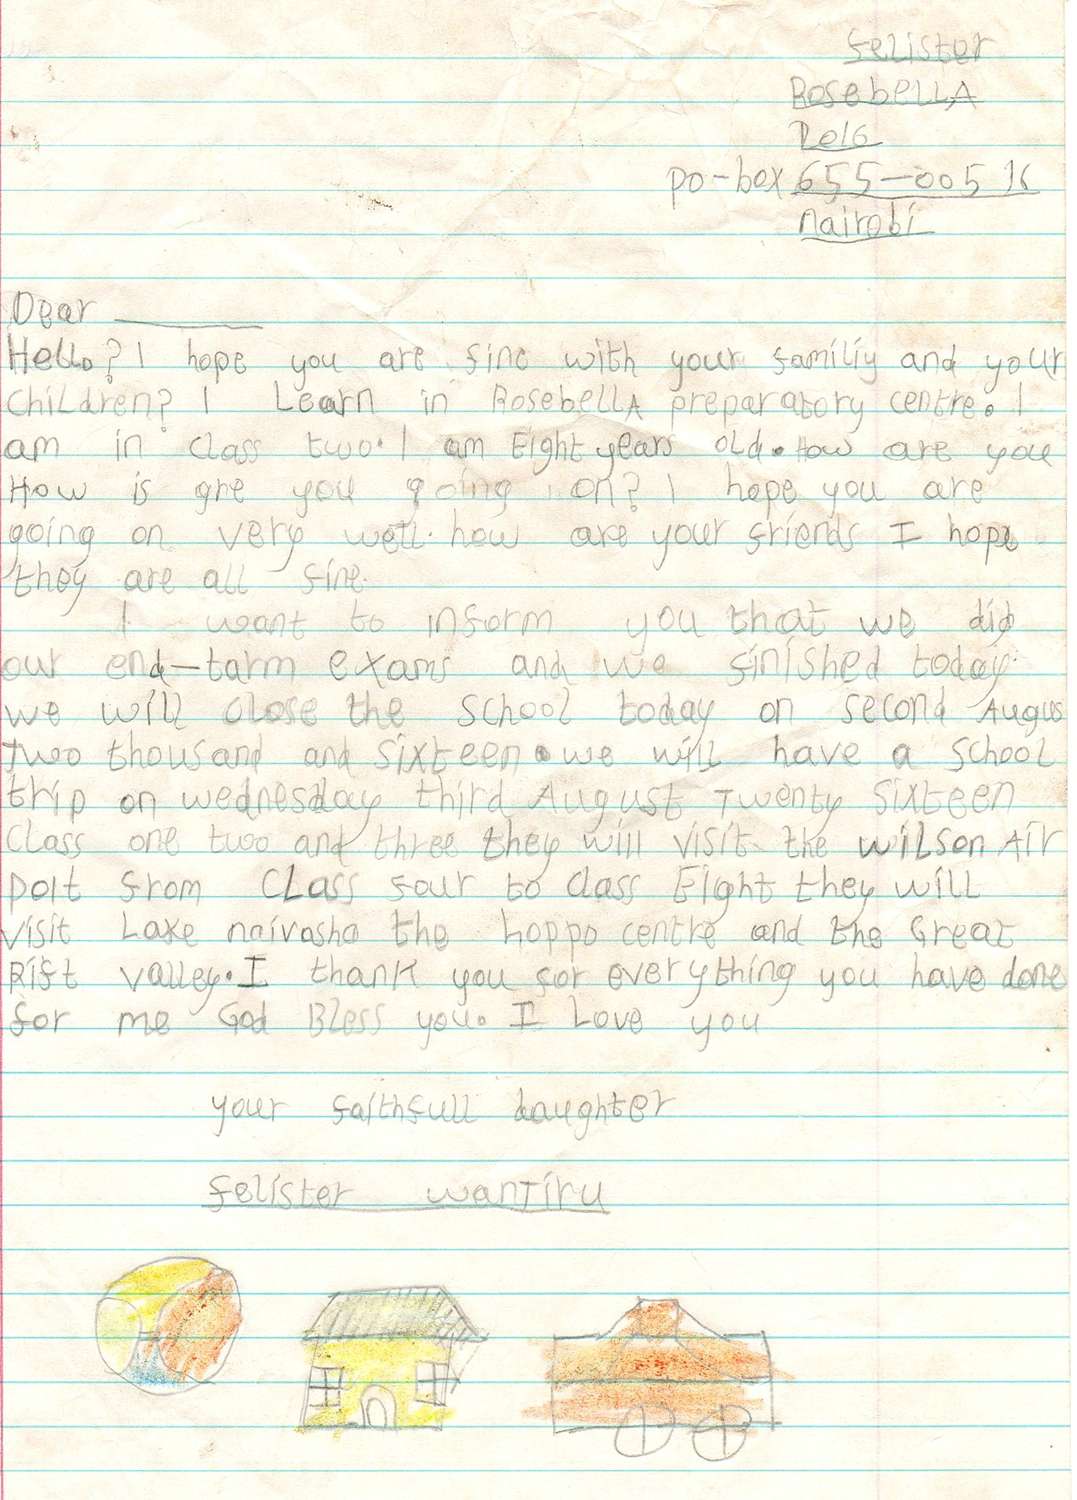 felister
RosebeLLA
2016
po-box 655-00516
nairobi
Dear
Hello? I hope you are fine with your familiy and your
ChiLdren? I Learn in RosebeLLA preparatory centre. I
am in class two. I am Eight years old. How are you
How is gre you going on? I hope you are
going on very well. how are your friends I hope
they are all fine.
I want to inform you that we did
our end-tarm exams and we finished today.
we will close the school today on second Augus
Two thousand and sixteen. we will have a school
trip on wednesday third August Twenty sixteen
Class one two and three they will visit the wilson Air
port from CLass four to class Eight they will
visit Lake naivasha the hoppo centre and the Great
Rift valley. I thank you for everything you have done
for me God Bless you. I Love you
your faithfull daughter
felister wanjiru